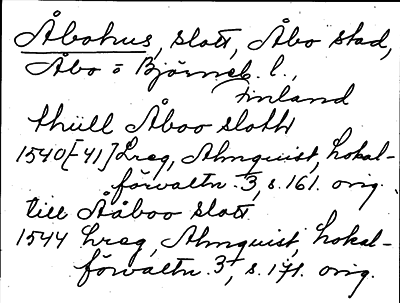 Åbohus, slott, Åbo stad,
Åbo o Björneb. l.,
Finland
thiill Åboo slotht
1540[-41] Lreg, Almquist, Lokal-
förvaltn. 3, s. 161. orig.
till Ååboo slott
1544 Lreg, Almquist, Lokal-
förvaltn. 3, s. 171. orig.